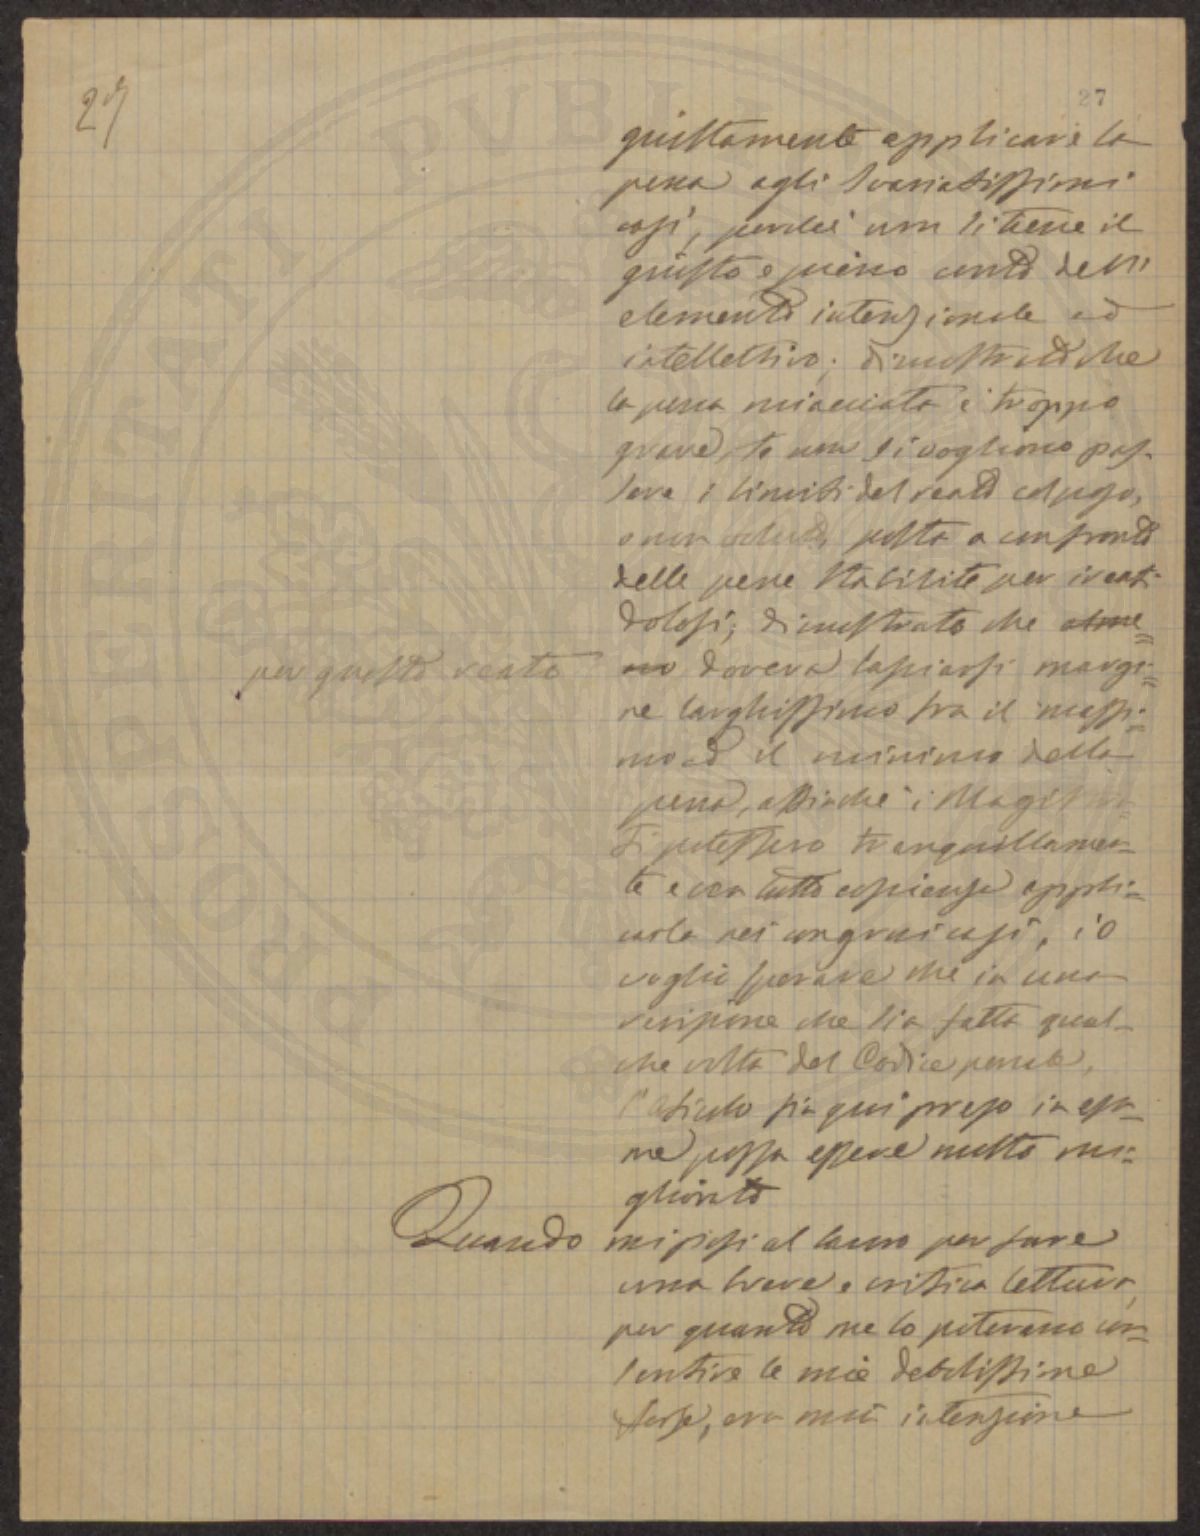 27
27
giustamente applicare la
pena agli svariatissimi
casi, perchè non si tiene il
giusto e pieno conto dell'
elemento intenzionale ed
intellettivo; dimostrato che
la pena minacciata è troppo
grave, se non si vogliono pas-
sare i limiti del reato colposo,
e non voluto, posta a confronto
delle pene stabilite per i reati
dolosi; dimostrato che alme=
no doveva lasciarsi margi=
per questo reato
ne larghissimo fra il massi=
mo ed il minimo della
pena, affinchè i Magistra=
ti potessero tranquillamen=
te e con tutta coscienza appli=
carla nei congrui casi, io
voglio sperare che in una
revisione che sia fatta qual-
che volta del Codice penale,
l'articolo sin qui preso in esa=
me possa essere molto mi=
gliorato
Quando mi posi al lavoro per fare
una breve e critica lettura,
per quanto me lo potevano con=
sentire le mie debolissime
forze, era mia intenzione
PROSPERITATI PUBL